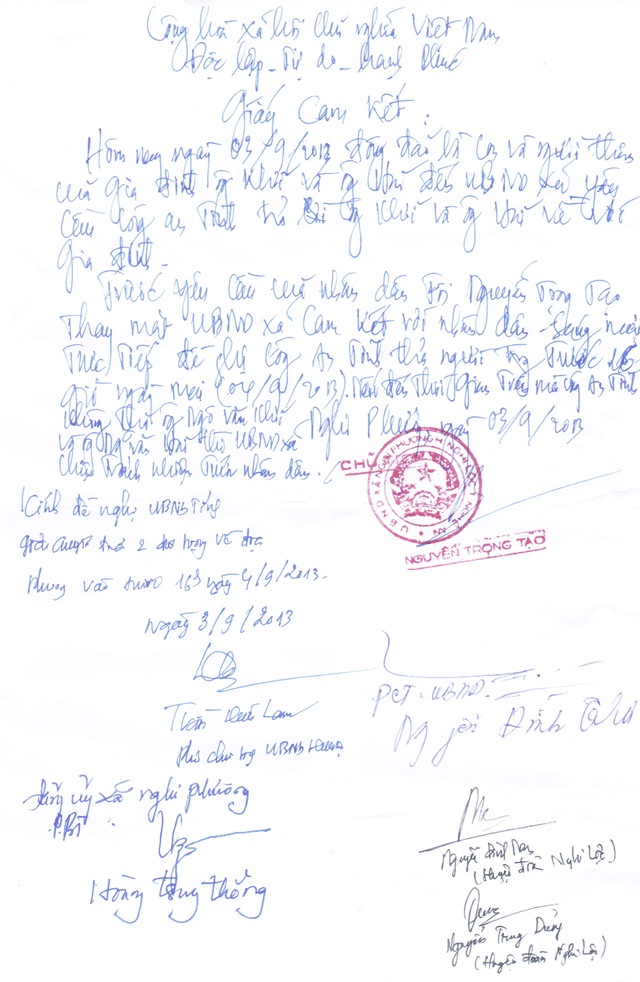 Cộng hoà xã hội chủ nghĩa Việt Nam
Độc lập - Tự do - Hạnh Phúc
Giấy Cam Kết:
Hôm nay ngày 03/9/2013 đông đảo bà con và người thân
của gia đình ông Khởi và ông Hải đến UBND xã yêu
cầu công an Tỉnh thả ông Khởi và ông Hải về với
gia đình.
Trước yêu cầu của nhân dân tôi Nguyễn Trọng Tạo
Thay mặt UBND xã Cam kết với nhân dân
Trực Tiếp đề nghị Công An Tỉnh thả người trước 16
giờ ngày mai (04/9/2013). Nếu đến Thời gian Trên mà Công An Tỉnh
không thả ông Ngô văn Khởi Nghi Phương ngày 03/9/2013
và ông văn Hải thì UBND xã
chịu Trách nhiệm Trước nhân dân.
CHỦ
U.B.N.D XÃ NGHI PHƯƠNG H. NGHI LỘC T. NGHỆ AN
NGUYỄN TRỌNG TẠO
Kính đề nghị UBND Tỉnh
giải quyết 2 đối tượng về địa
phương vào trước 16h ngày 4/9/2013.
ngày 3/9/2013
PCT. UBND.
Nguyễn Đình
Phó chủ tịch UBND huyện
Đảng uỷ xã nghi phương
P.BT
Hoàng Thông
Nguyễn Đình
(Huyện đoàn Nghi Lộc)
Nguyễn Trung Dũng
(Huyện đoàn Nghi Lộc)